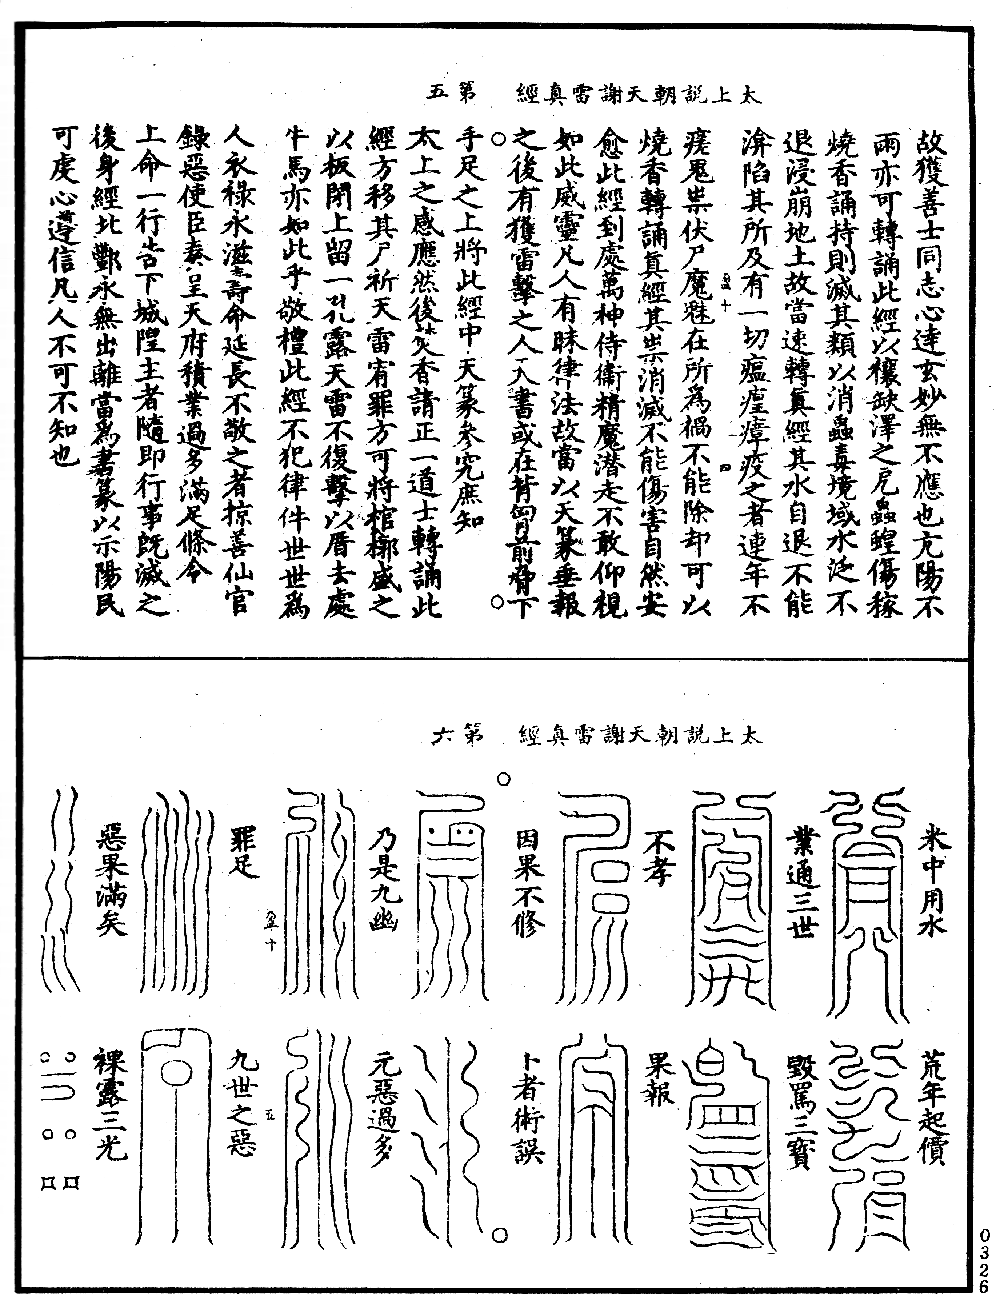 太上説朝天謝雷真經　第五
故獲善士同志心達玄妙無不應也亢陽不
雨亦可轉誦此經以穰缺澤之戹蟲蝗傷稼
燒香誦持則滅其類以消蟲毒境域水泛不
退浸崩地土故當速轉眞經其水自退不能
渰陷其所及有一切瘟瘽瘴疫之者連年不
瘥鬼祟伏尸魔魅在所爲禍不能除却可以
燒香轉誦眞經其祟消滅不能傷害自然安
愈此經到處萬神侍衞精魔潛走不敢仰視
如此威靈凡人有昧律法故當以天篆垂報
之後有獲雷擊之人人書或在背胷前脅下
手足之上將此經中天篆參究庶知
太上之感應然後焚香請正一道士轉誦此
經方移其尸祈天雷宥罪方可將棺槨盛之
以板閉上留一孔露天雷不復擊以厝去處
牛馬亦如此乎敬禮此經不犯律件世世爲
人衣祿永滋壽命延長不敬之者掠善仙官
錄惡使臣奏呈天府積業過多滿足條令
上命一行告下城隍主者隨即行事旣滅之
後身經北酆永無出離當爲書篆以示陽民
可虔心遵信凡人不可不知也
太上説朝天謝雷真經　第六
米中用水
荒年起價
業通三世
毀罵三寶
不孝
果報
因果不修
卜者術誤
乃是九幽
元惡過多
罪足
九世之惡
惡果滿矣
裸露三光
0326